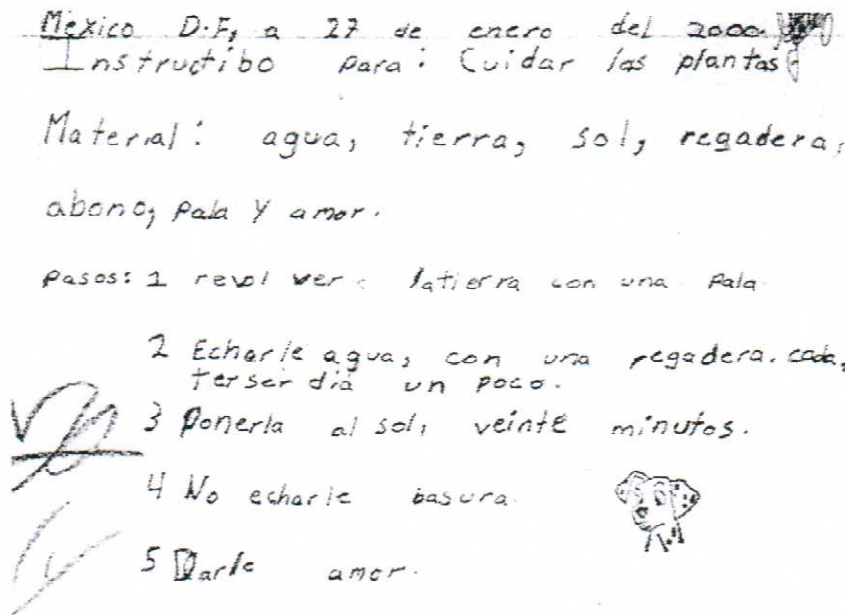 México D.F, a 27 de enero del 2000.
Instructibo para: Cuidar las plantas
Material: agua, tierra, sol, regadera,
abono, pala y amor.
Pasos: 1 revol ver latierra con una pala
2 Echarle agua, con una regadera. cada,
terser dia un poco.
3 Ponerla al sol, veinte minutos.
4 No echarle basura.
5 Darle amor.